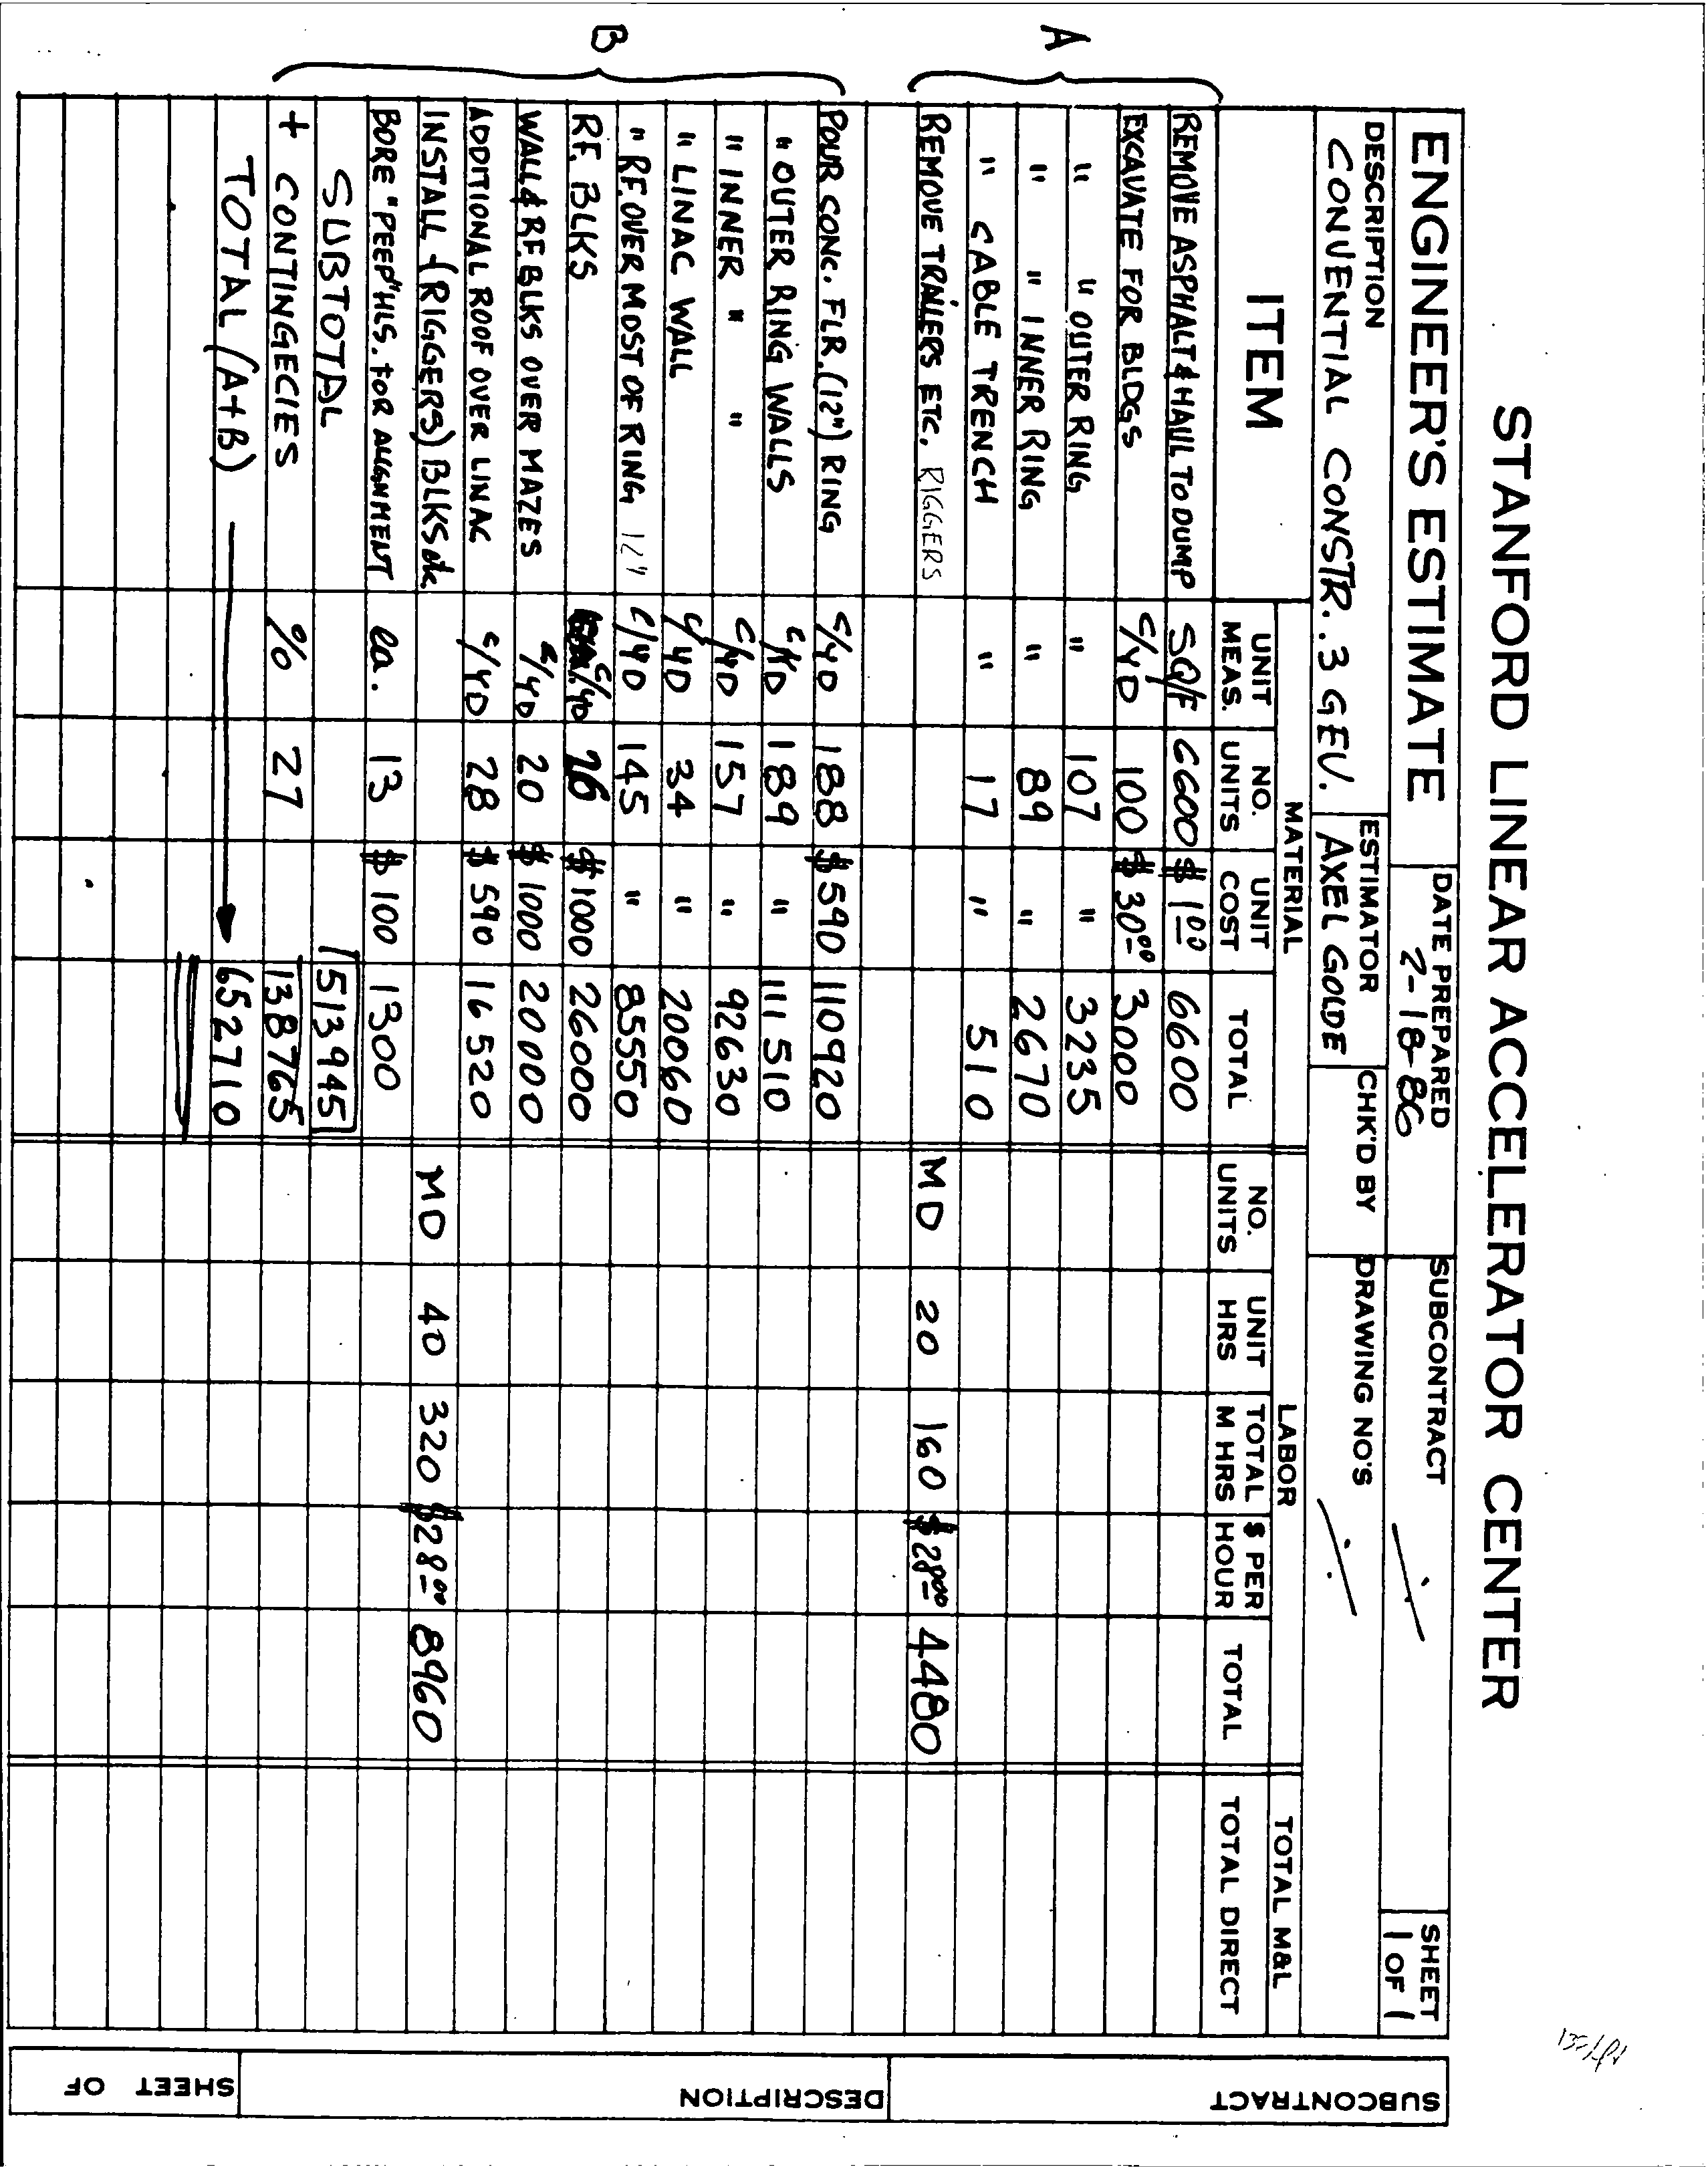 STANFORD LINEAR ACCELERATOR CENTER
ENGINEER'S ESTIMATE DATE PREPARED 2-18-86 SUBCONTRACT SHEET 1 OF 1
DESCRIPTION CONVENTIAL CONSTR. . 3 GEV. ESTIMATOR AXEL GOLDE CHK'D BY DRAWING NO'S
ITEM MATERIAL LABOR TOTAL M&L
UNIT MEAS. NO. UNITS UNIT COST TOTAL NO. UNITS UNIT HRS TOTAL M HRS $ PER HOUR TOTAL TOTAL DIRECT
A
REMOVE ASPHALT & HAUL TO DUMP SQ/F 6600 $ 1 00 6600
EXCAVATE FOR BLDGS C/YD 100 $ 30 00 3000
" " OUTER RING " 107 " 3235
" " INNER RING " 89 " 2670
" CABLE TRENCH " 17 " 510
REMOVE TRAILERS ETC. RIGGERS MD 20 160 $ 28 00 4480
B
POUR CONC. FLR. (12") RING C/YD 188 $ 590 110920
" OUTER RING WALLS C/YD 189 " 111510
" INNER " " C/YD 157 " 92630
" LINAC WALL C/YD 34 " 20060
" RF. OVER MOST OF RING 12" C/YD 145 " 85550
RF. BLKS C/YD 26 $ 1000 26000
WALL & RF. BLKS OVER MAZES C/YD 20 $ 1000 20000
ADDITIONAL ROOF OVER LINAC C/YD 28 $ 590 16520
INSTALL (RIGGERS) BLKS etc. MD 40 320 $ 28 00 8960
BORE "PEEP" HLS. FOR ALIGNMENT ea. 13 $ 100 1300
SUBTOTAL 513945
+ CONTINGECIES % 27 138765
TOTAL (A+B) 652710
SUBCONTRACT DESCRIPTION SHEET OF